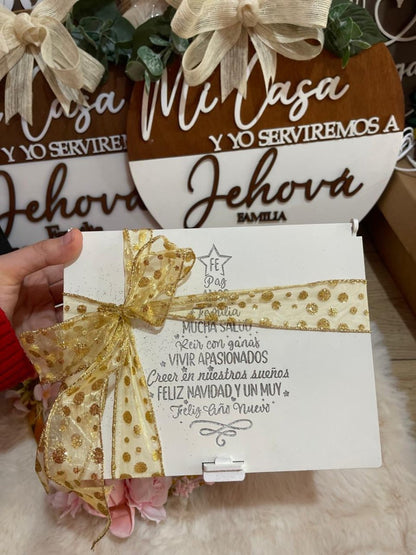 Mi Casa
Y YO SERVIR
Jehová
Mi Casa
Y YO SERVIREMOS A
Jehová
FAMILIA
FE
Paz
Familia
MUCHA SALUD
Reír con ganas
VIVIR APASIONADOS
Creer en nuestros sueños
FELIZ NAVIDAD Y UN MUY
Feliz Año Nuevo